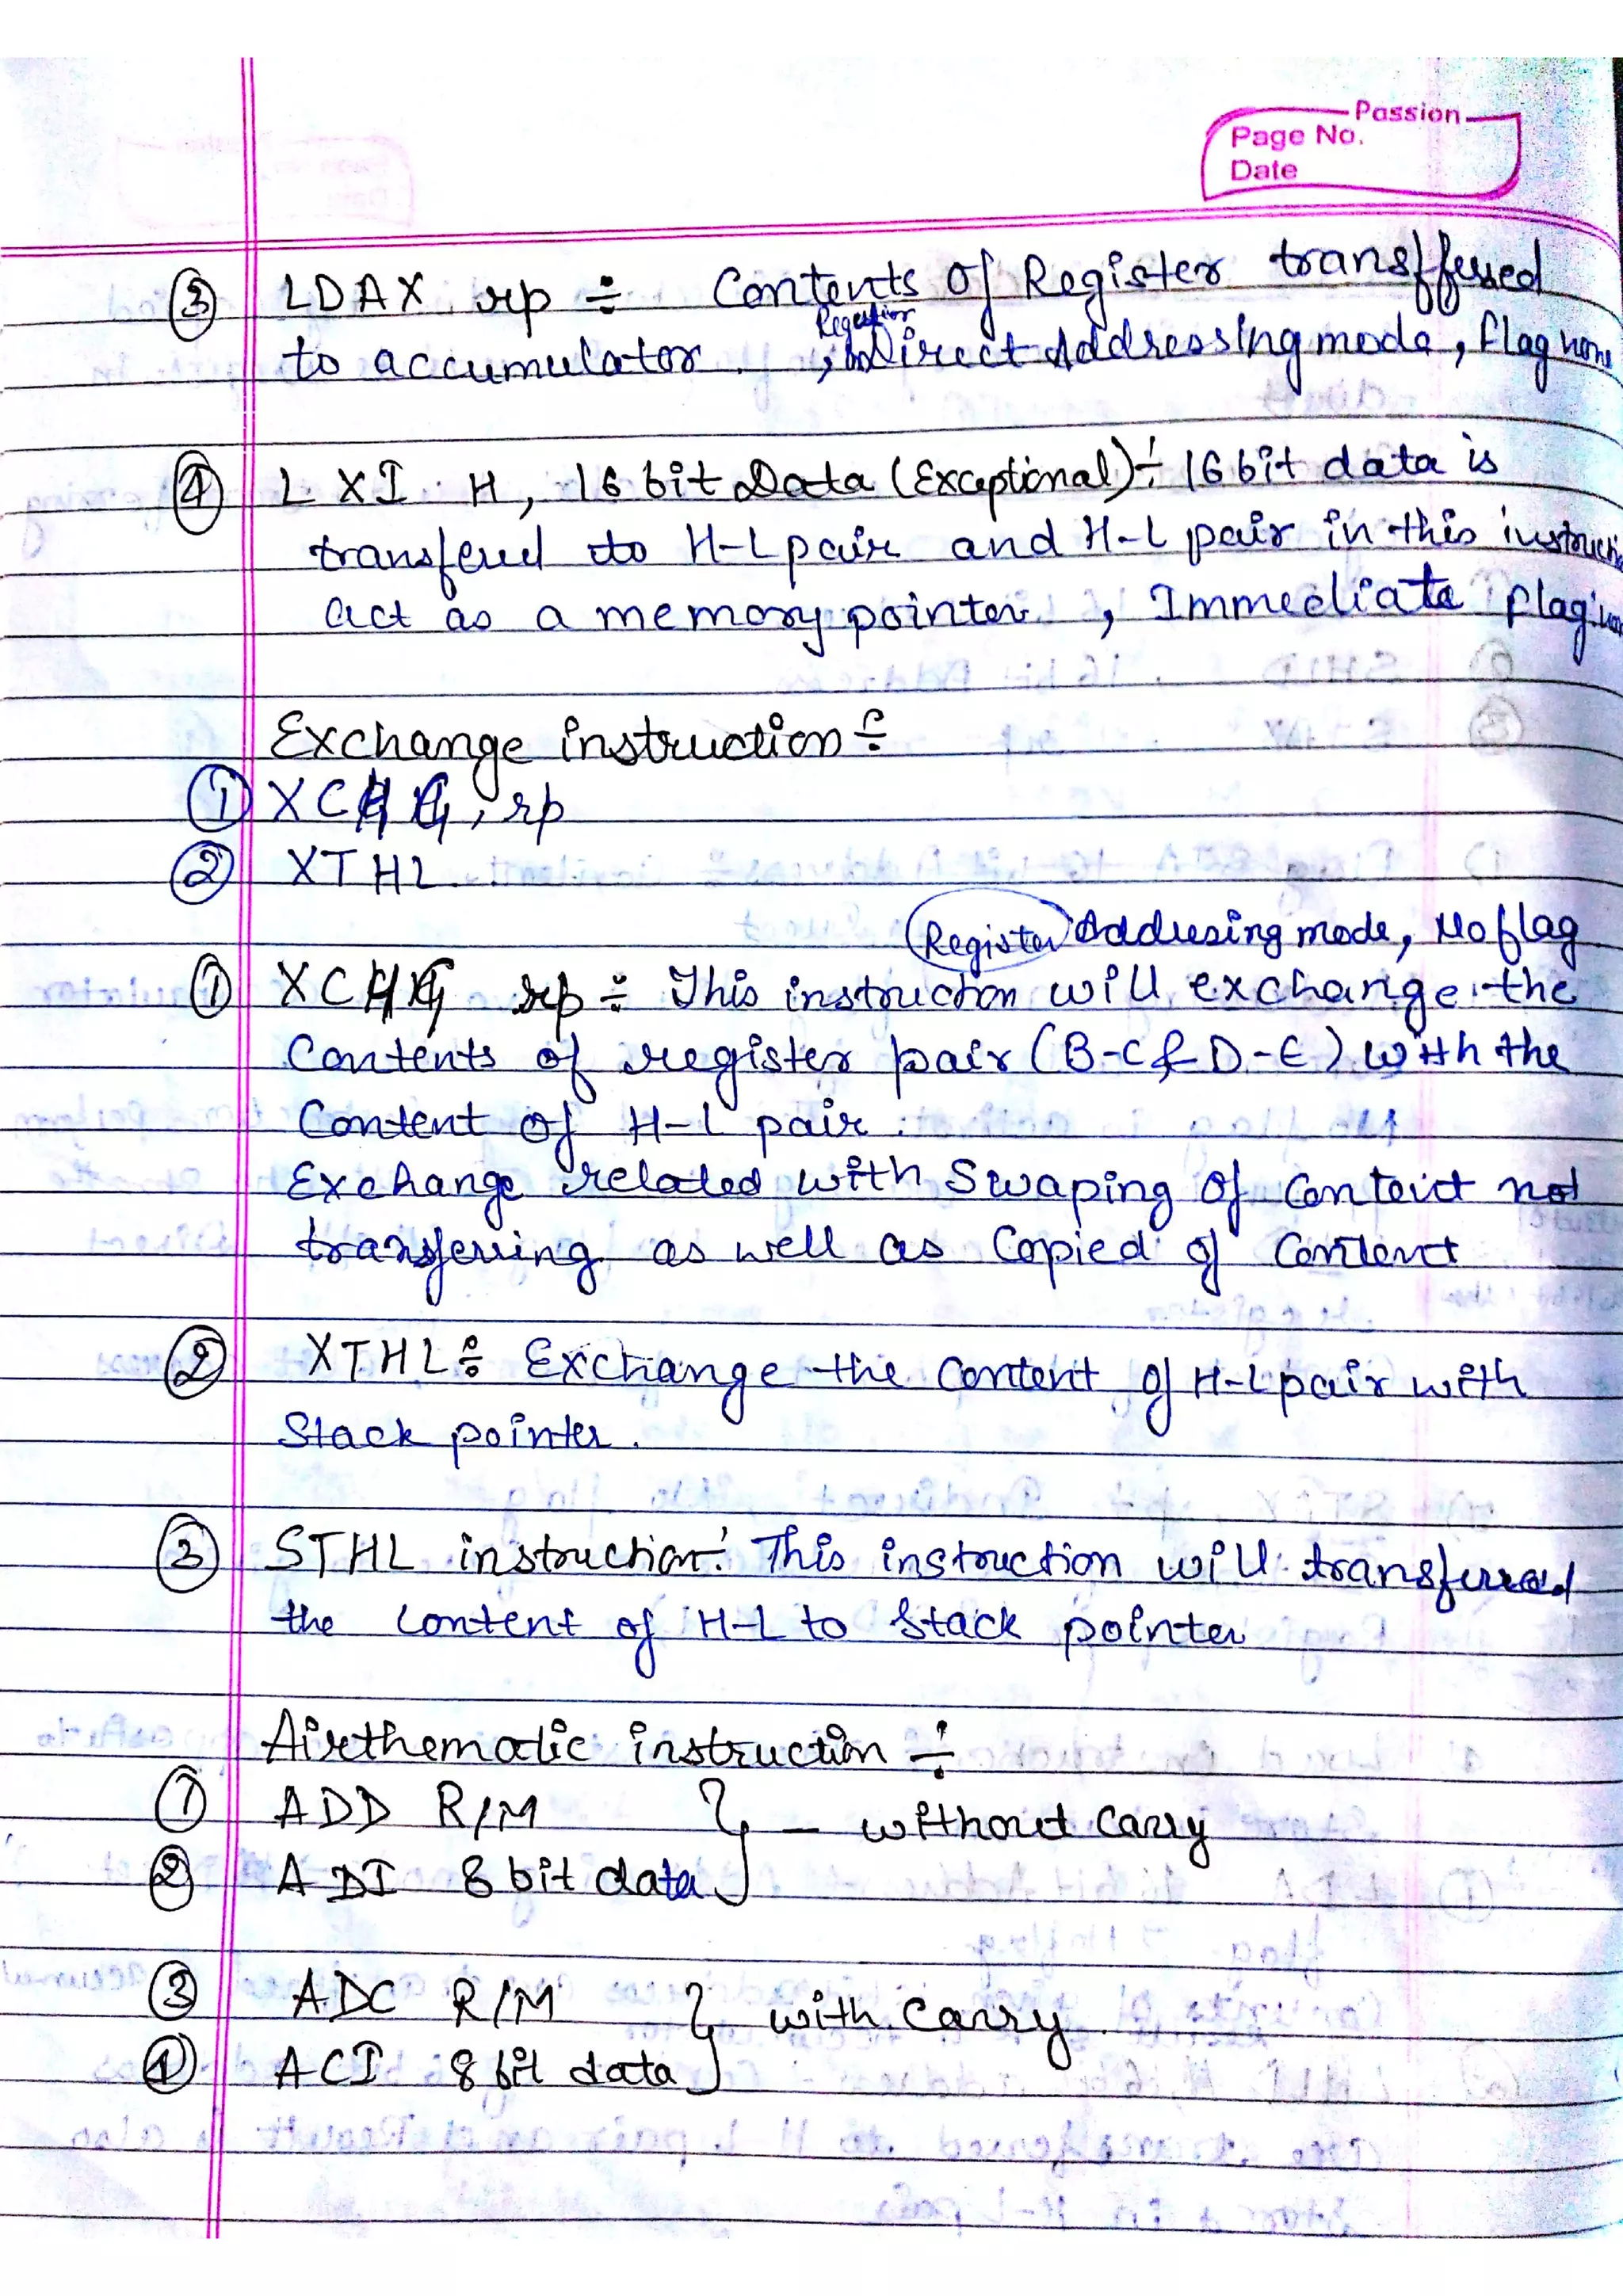 Passion
Page No.
Date
③ LDAX rp ÷ Contents of Register transffered
Register
to accumulator , inDirect Addressing mode, flag none
④ LXI H, 16 bit Data (Exceptional) ÷ 16 bit data is
transfered to H-L pair and H-L pair in this instructi
act as a memory pointer , Immediate flag
Exchange instruction ÷
① XCHG, rp
② XTHL
Register Addresing mode, No flag
① XCHG rp ÷ This instruction will exchange the
Contents of register pair (B-C & D-E) with the
Content of H-L pair.
Exchange related with Swaping of Content not
transferring as well as Copied of Content
② XTHL ÷ Exchange the Content of H-L pair with
Stack pointer.
③ STHL instruction ÷ This instruction will transferred
the Content of H-L to Stack pointer
Airthematic instruction ÷
① ADD R/M } - without Carry
② ADI 8 bit data
③ ADC R/M } with Carry
④ ACI 8 bit data